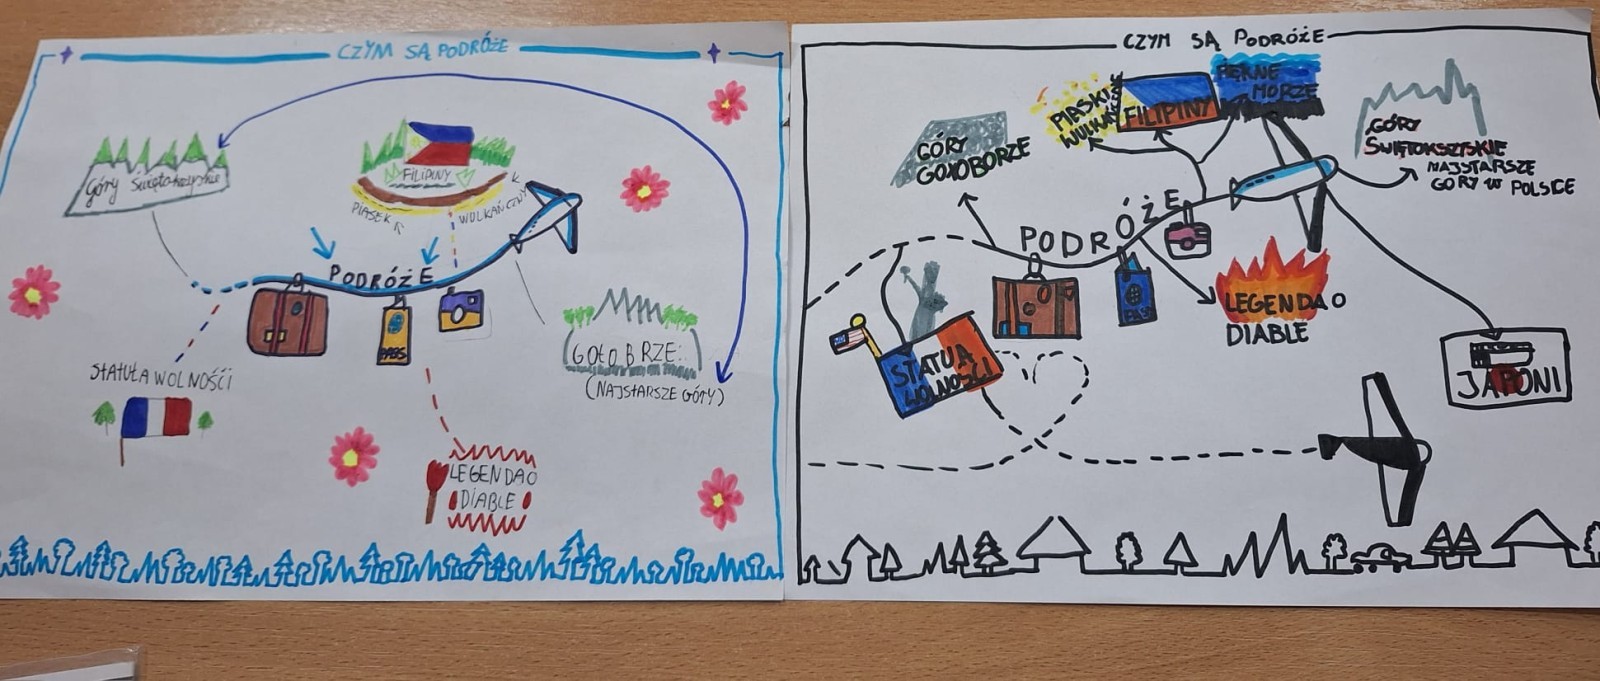 CZYM SĄ PODRÓŻE
Góry Świętokrzyskie
FILIPINY
PIASEK
WULKANCZNY
PODRÓŻE
PASS
STATUŁA WOLNOŚĆI
GOŁOBRZE:
(NAJSTARSZE GÓTY)
LEGENDA O
DIABLE
CZYM SĄ PODRÓŻE
GÓRY
GOŁOBORZE
PIASKI
WULKA
FILIPINY
MORZE
GÓRY
ŚWIĘTOKSZYSKIE
NAJSTARSZE
GÓRY W POLSCE
PODRÓŻE
PAS
LEGENDA O
DIABLE
STATUA
WOLNOŚCI
JAPONI